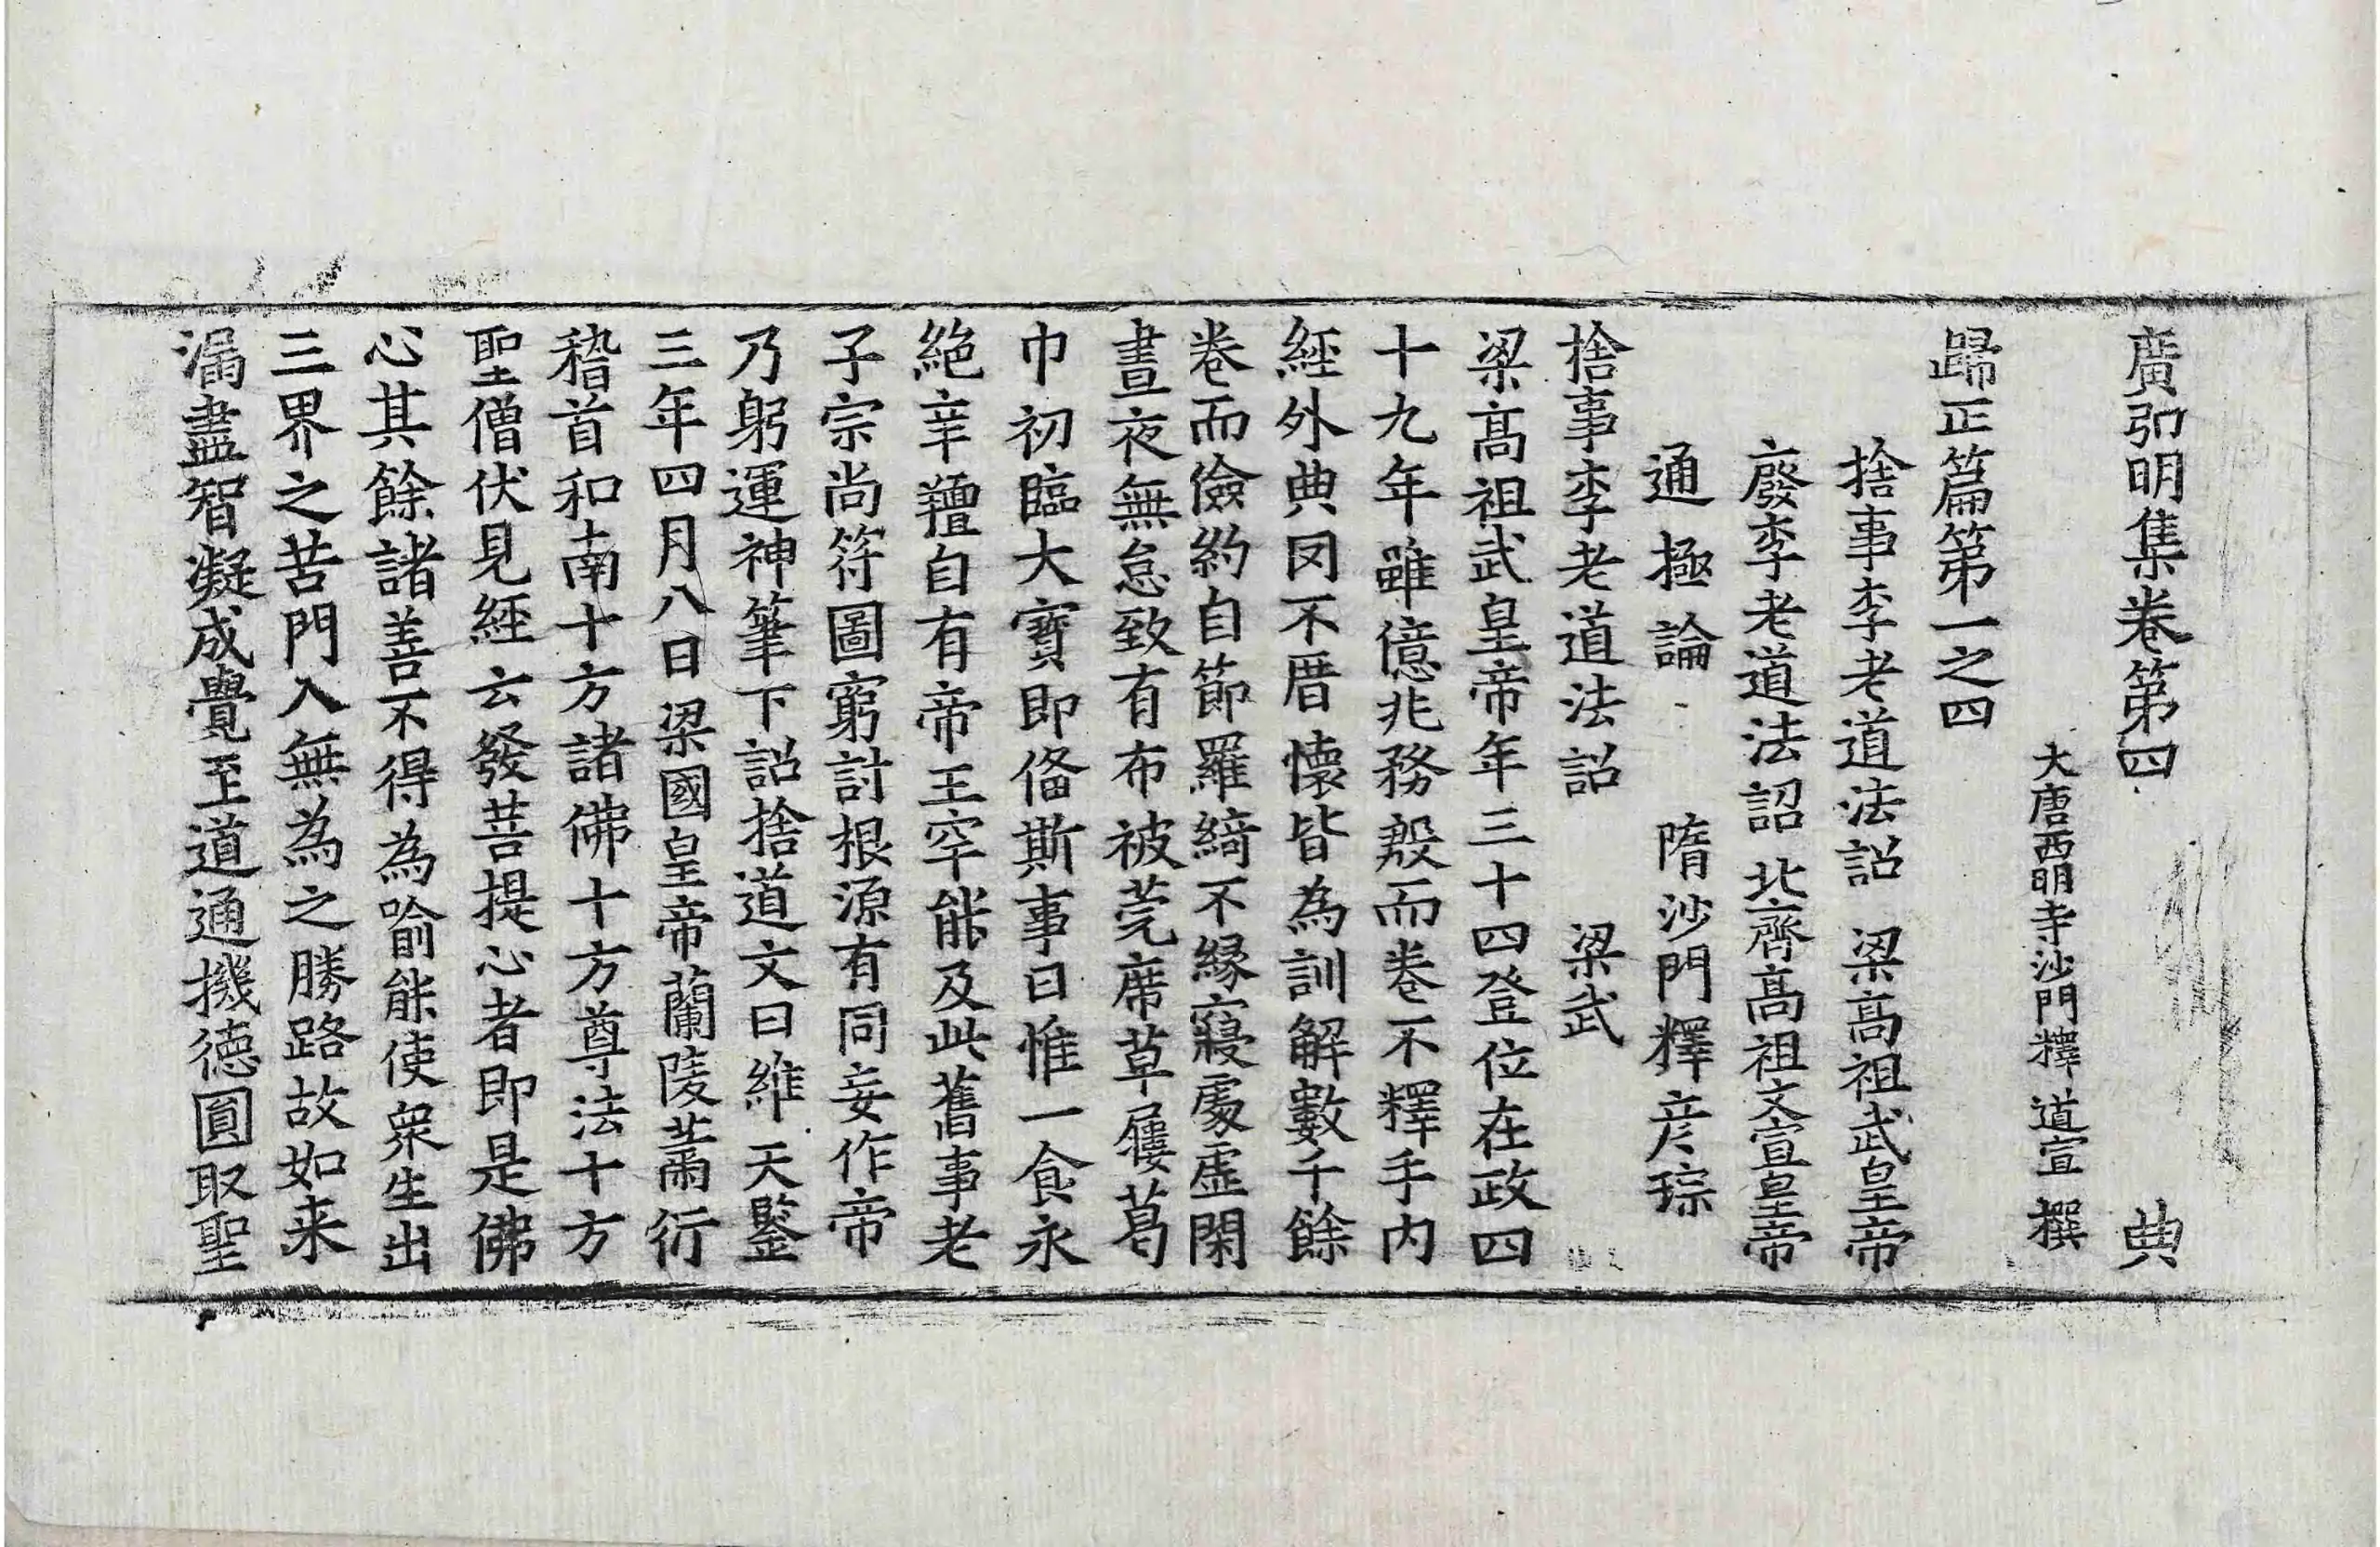 廣弘明集卷第四 典
大唐西明寺沙門釋道宣撰
歸正篇第一之四
捨事李老道法詔 梁高祖武皇帝
廢李老道法詔 北齊高祖文宣皇帝
通極論 隋沙門釋彦琮
捨事李老道法詔 梁武
梁髙祖武皇帝年三十四登位在政四
十九年雖億兆務殷而卷不釋手内
經外典罔不厝懷皆為訓解數千餘
卷而儉約自節羅綺不緣寢處虛閑
晝夜無怠致有布被莞席草屨葛
巾初臨大寶即俻斯事日惟一食永
絶辛羶自有帝王罕能及此舊事老
子宗尚符圖窮討根源有同妄作帝
乃躬運神筆下詔捨道文曰維天鑒
三年四月八日梁國皇帝蘭陵蕭衍
稽首和南十方諸佛十方尊法十方
聖僧伏見經云發菩提心者即是佛
心其餘諸善不得為喻能使衆生出
三界之苦門入無為之勝路故如来
漏盡智凝成覺至道通機德圓取聖